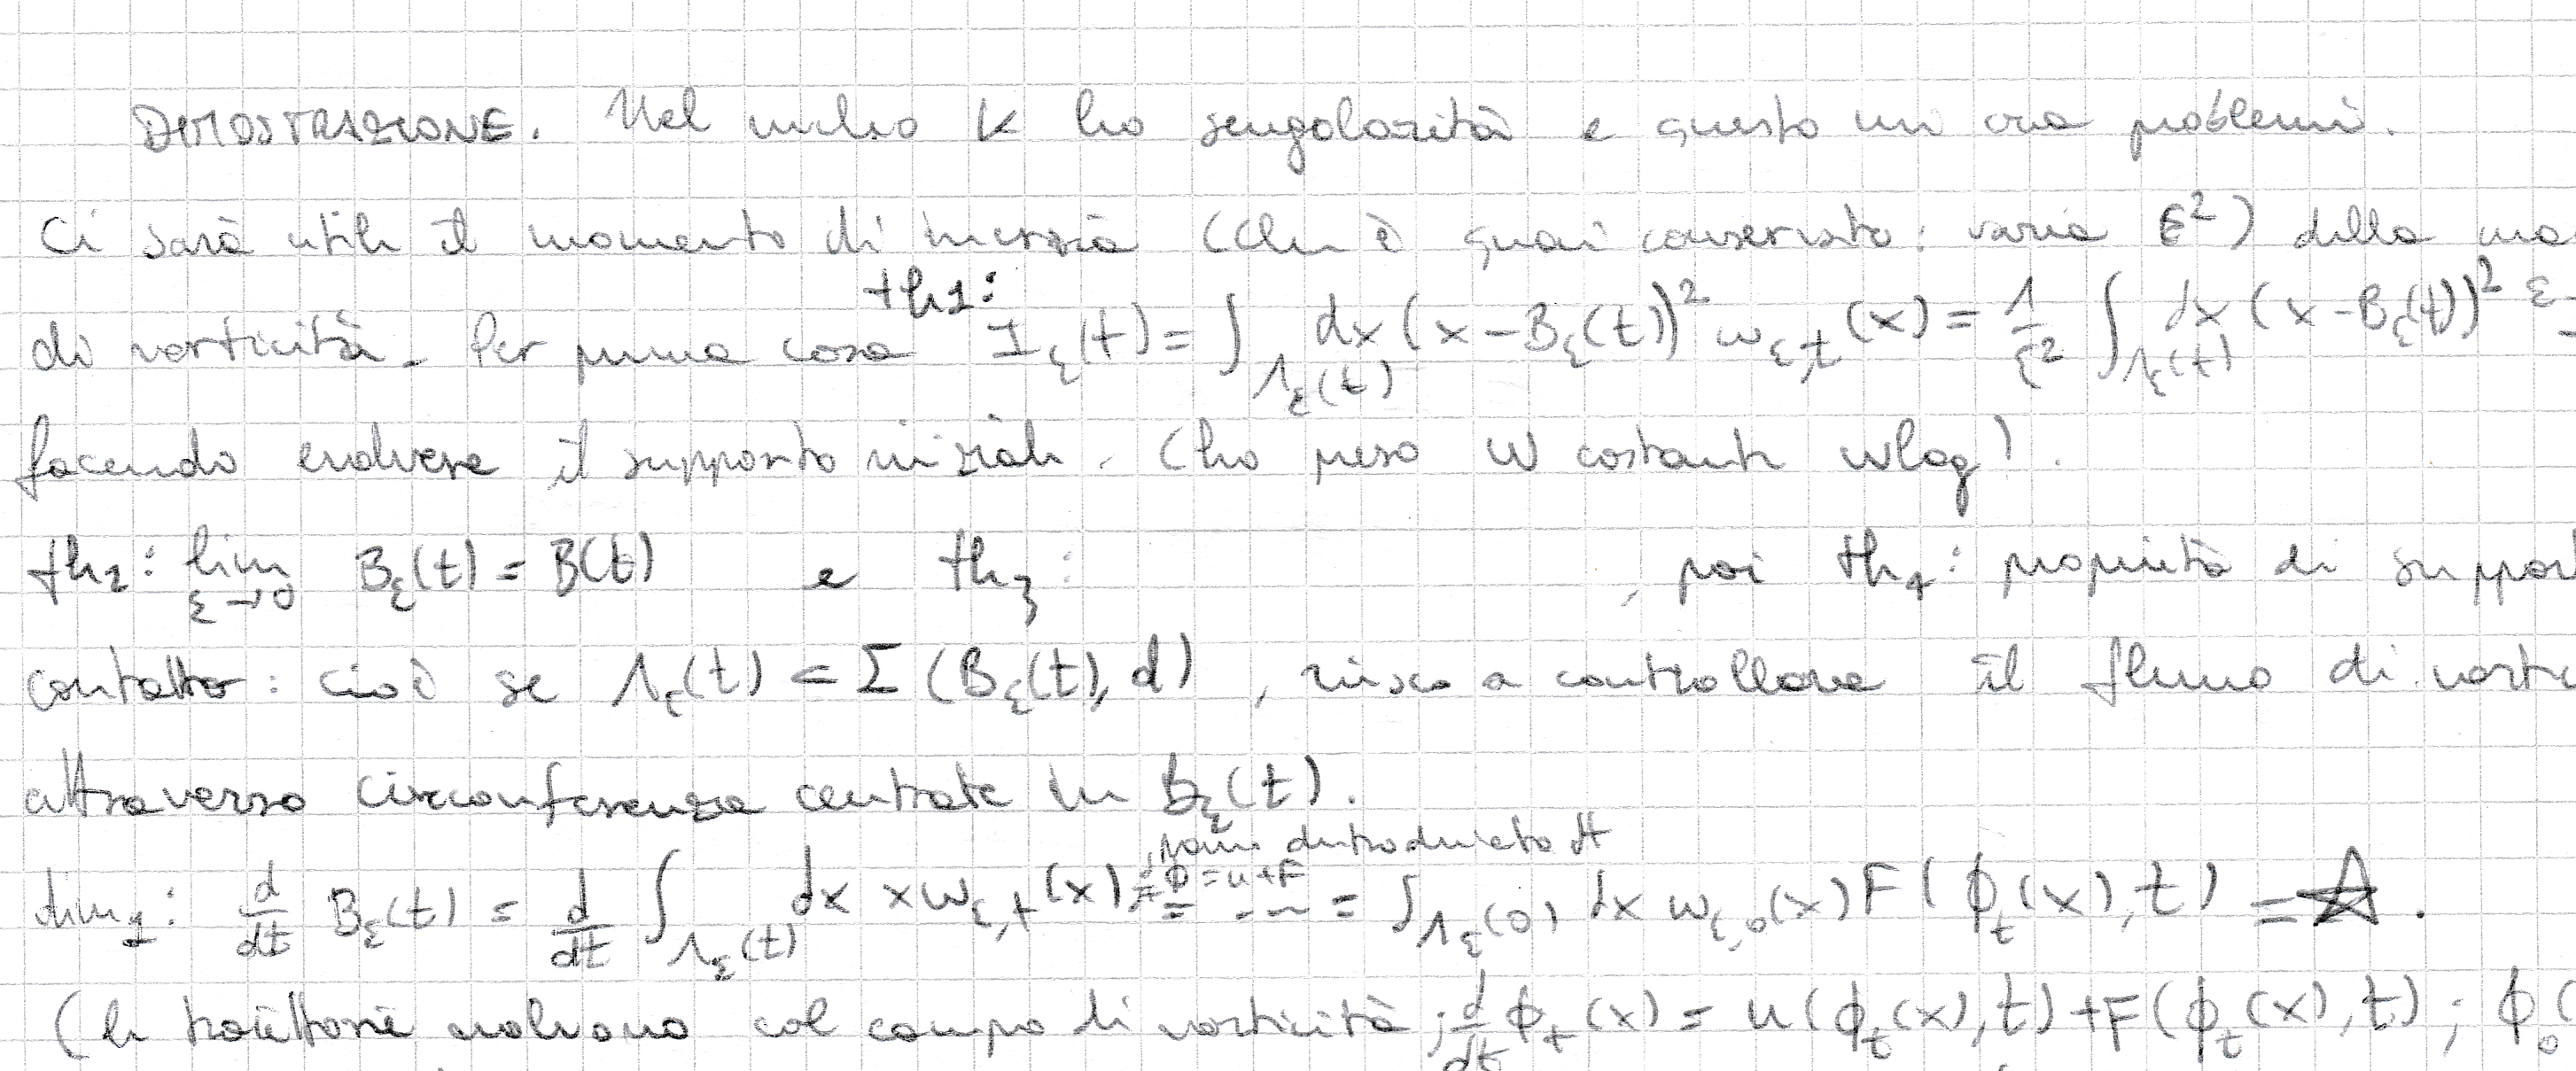 DIMOSTRAZIONE. Nel nucleo K ho singolarità e questo mi crea problemi.
Ci sarà utile il momento di inerzia (che è quasi conservato: varia ε²) della ma
th1:
di vorticità. Per prima cosa I_ε(t) = ∫_{Λ_ε(t)} dx (x-B_ε(t))² ω_{ε,t}(x) = 1/ε² ∫_{Λ_ε(t)} dx (x-B_ε(t))² ε
facendo evolvere il supporto iniziale. (ho peso ω costante wlog).
th2: lim_{ε→0} B_ε(t) = B(t) e th3: , poi th4: proprietà di suppor
contatto: cioè se Λ_ε(t) ⊂ Σ(B_ε(t), d), riesco a controllare il flusso di vorti
attraverso circonferenze centrate in B_ε(t).
dim1: d/dt B_ε(t) = d/dt ∫_{Λ_ε(t)} dx x ω_{ε,t}(x) = ... = ∫_{Λ_ε(0)} dx ω_{ε,0}(x) F(ϕ_t(x),t) = ☆.
ϕ̇ = u+F
(le traiettorie evolvono col campo di vorticità; d/dt ϕ_t(x) = u(ϕ_t(x),t) + F(ϕ_t(x),t); ϕ_0(